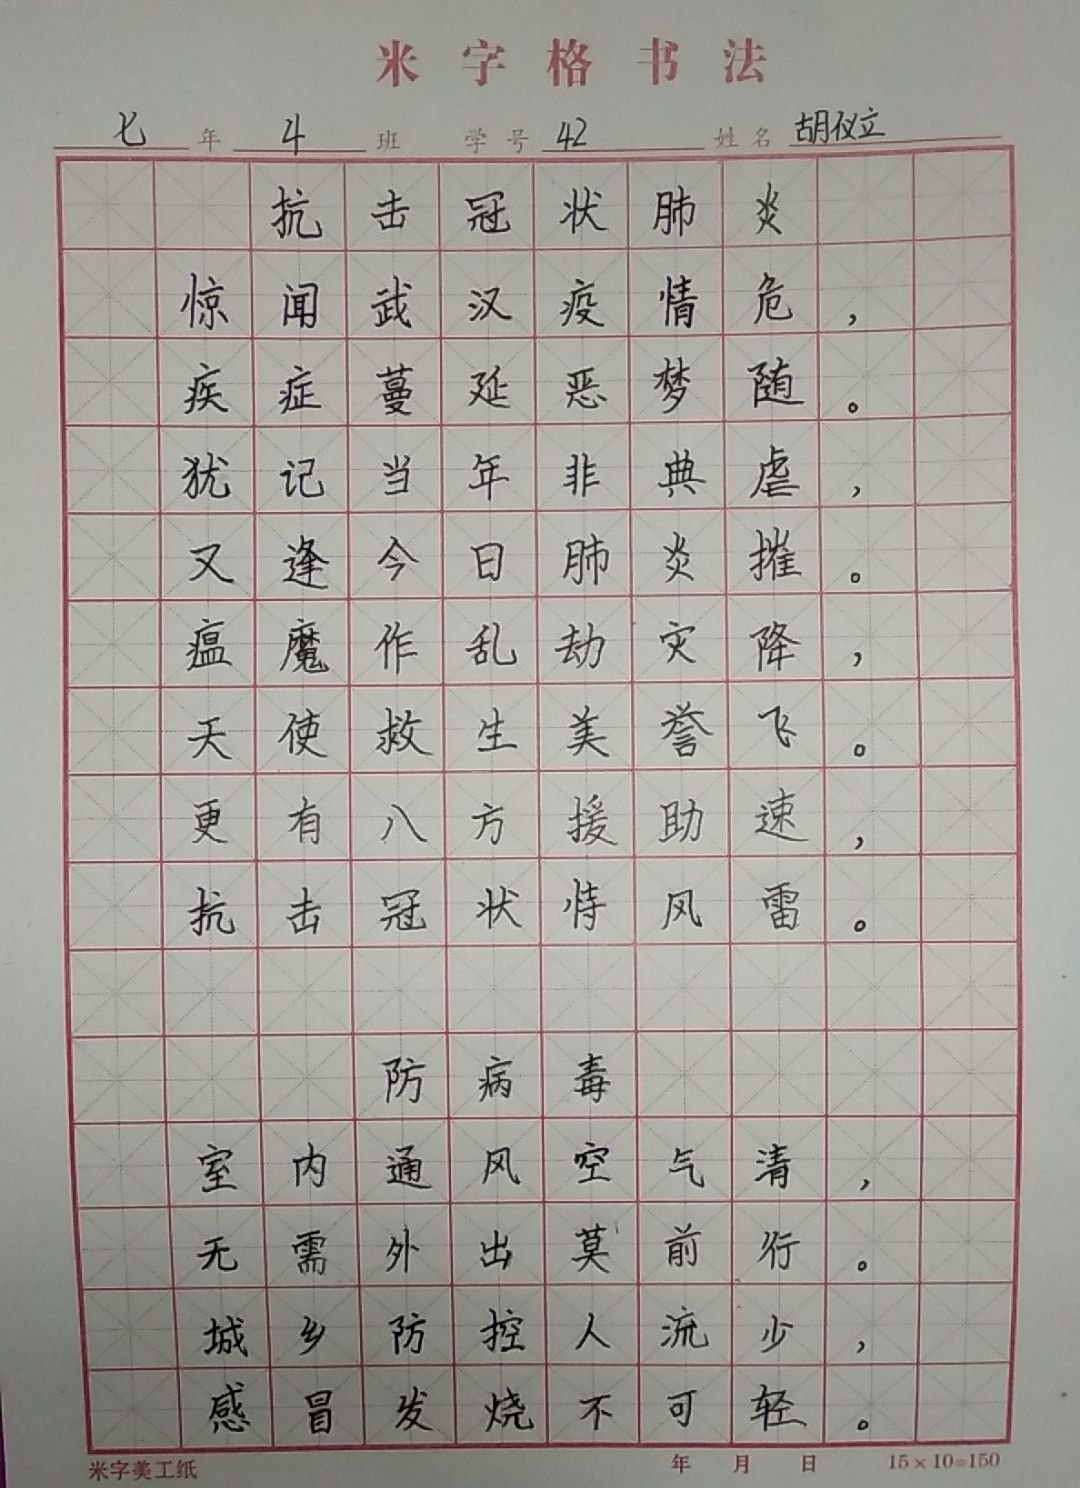 米字格书法
七年 4班 学号 42 姓名 胡仪立
抗击冠状肺炎
惊闻武汉疫情危，
疾症蔓延恶梦随。
犹记当年非典虐，
又逢今日肺炎摧。
瘟魔作乱劫灾降，
天使救生美誉飞。
更有八方援助速，
抗击冠状恃风雷。
防病毒
室内通风空气清，
无需外出莫前行。
城乡防控人流少，
感冒发烧不可轻。
米字美工纸 年 月 日 15×10=150